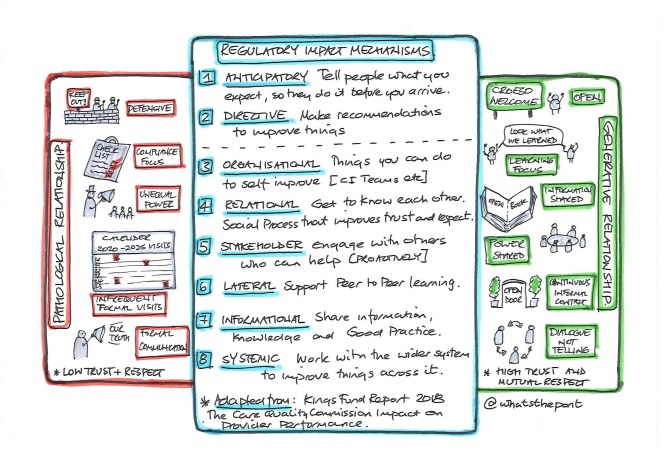 REGULATORY IMPACT MECHANISMS
1 ANTICIPATORY Tell people what you
expect, so they do it before you arrive.
2 DIRECTIVE Make recommendations
to improve things
3 ORGANISATIONAL Things you can do
to self improve [CI Teams etc]
4 RELATIONAL Get to know each other.
Social Process that improves trust and respect.
5 STAKEHOLDER Engage with others
who can help [PROACTIVELY]
6 LATERAL Support Peer to Peer learning.
7 INFORMATIONAL Share information,
knowledge and Good Practice.
8 SYSTEMIC Work with the wider system
to improve things across it.
* Adapted from: Kings Fund Report 2018
The Care Quality Commission Impact on
Provider Performance.
PATHOLOGICAL RELATIONSHIP
KEEP
OUT!
DEFENSIVE
CHECK
LIST
COMPLIANCE
FOCUS
UNEQUAL
POWER
CALENDER
2020-2026 VISITS
INFREQUENT
FORMAL VISITS
OUR
TRUTH
FORMAL
COMMUNICATION
* LOW TRUST + RESPECT
GENERATIVE RELATIONSHIP
CROESO
WELCOME
OPEN
LOOK WHAT
WE LEARNED
LEARNING
FOCUS
OPEN BOOK
INFORMATION
SHARED
POWER
SHARED
OPEN
DOOR
CONTINUOUS
INFORMAL
CONTACT
DIALOGUE
NOT
TELLING
* HIGH TRUST AND
MUTUAL RESPECT
@whatsthepont